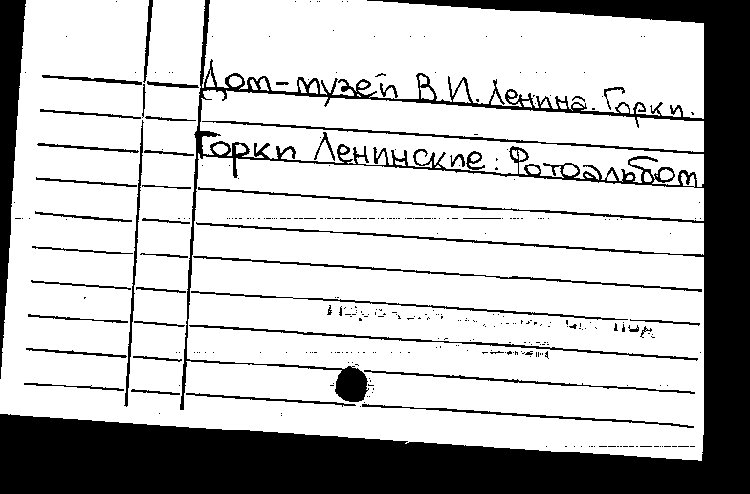 Дом-музей В.И. Ленина. Горки.
Горки Ленинские: Фотоальбом.